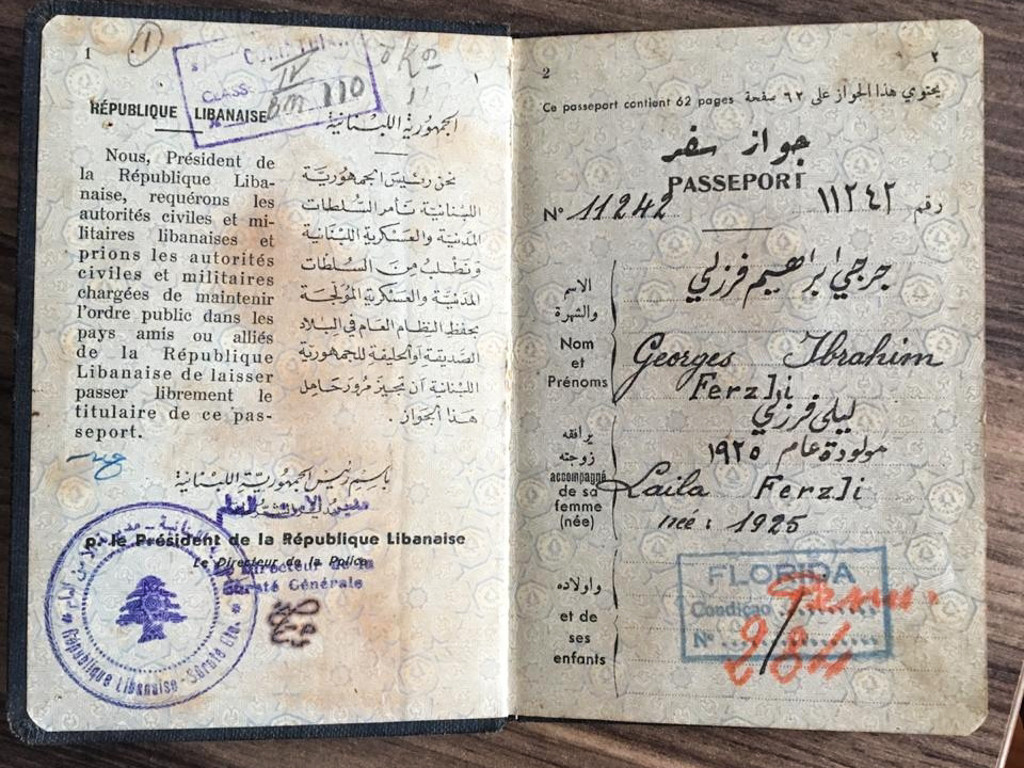 1
1
CLASS.
IV
BM 110
RÉPUBLIQUE LIBANAISE
Nous, Président de
la République Liba-
naise, requérons les
autorités civiles et mi-
litaires libanaises et
prions les autorités
civiles et militaires
chargées de maintenir
l'ordre public dans les
pays amis ou alliés
de la République
Libanaise de laisser
passer librement le
titulaire de ce pas-
seport.
١
الجمهورية اللبنانية
نحن رئيس الجمهورية
اللبنانية نأمر السلطات
المدنية والعسكرية اللبنانية
ونطلب من السلطات
المدنية والعسكرية المولجة
بحفظ النظام العام في البلاد
الصديقة او الحليفة للجمهورية
اللبنانية أن تجيز مرور حامل
هذا الجواز.
باسم رئيس الجمهورية اللبنانية
مدير الامن العام
p. le Président de la République Libanaise
Le Directeur de la Police
Le Directeur de la
Sûreté Générale
République Libanaise - Sûreté Gle.
2
٢
Ce passeport contient 62 pages يحتوي هذا الجواز على ٦٢ صفحة
جواز سفر
PASSEPORT
N° 11242
رقم ١١٢٤٢
الاسم
والشهرة
جرجي ابراهيم فرزلي
Nom
et
Prénoms
Georges Ibrahim
Ferzli
يرافقه
زوجته
ليلى فرزلي
مولودة عام ١٩٢٥
accompagné
de sa
femme
(née)
Laila Ferzli
née : 1925
واولاده
et de
ses
enfants
FLORIDA
Condição
N° 284